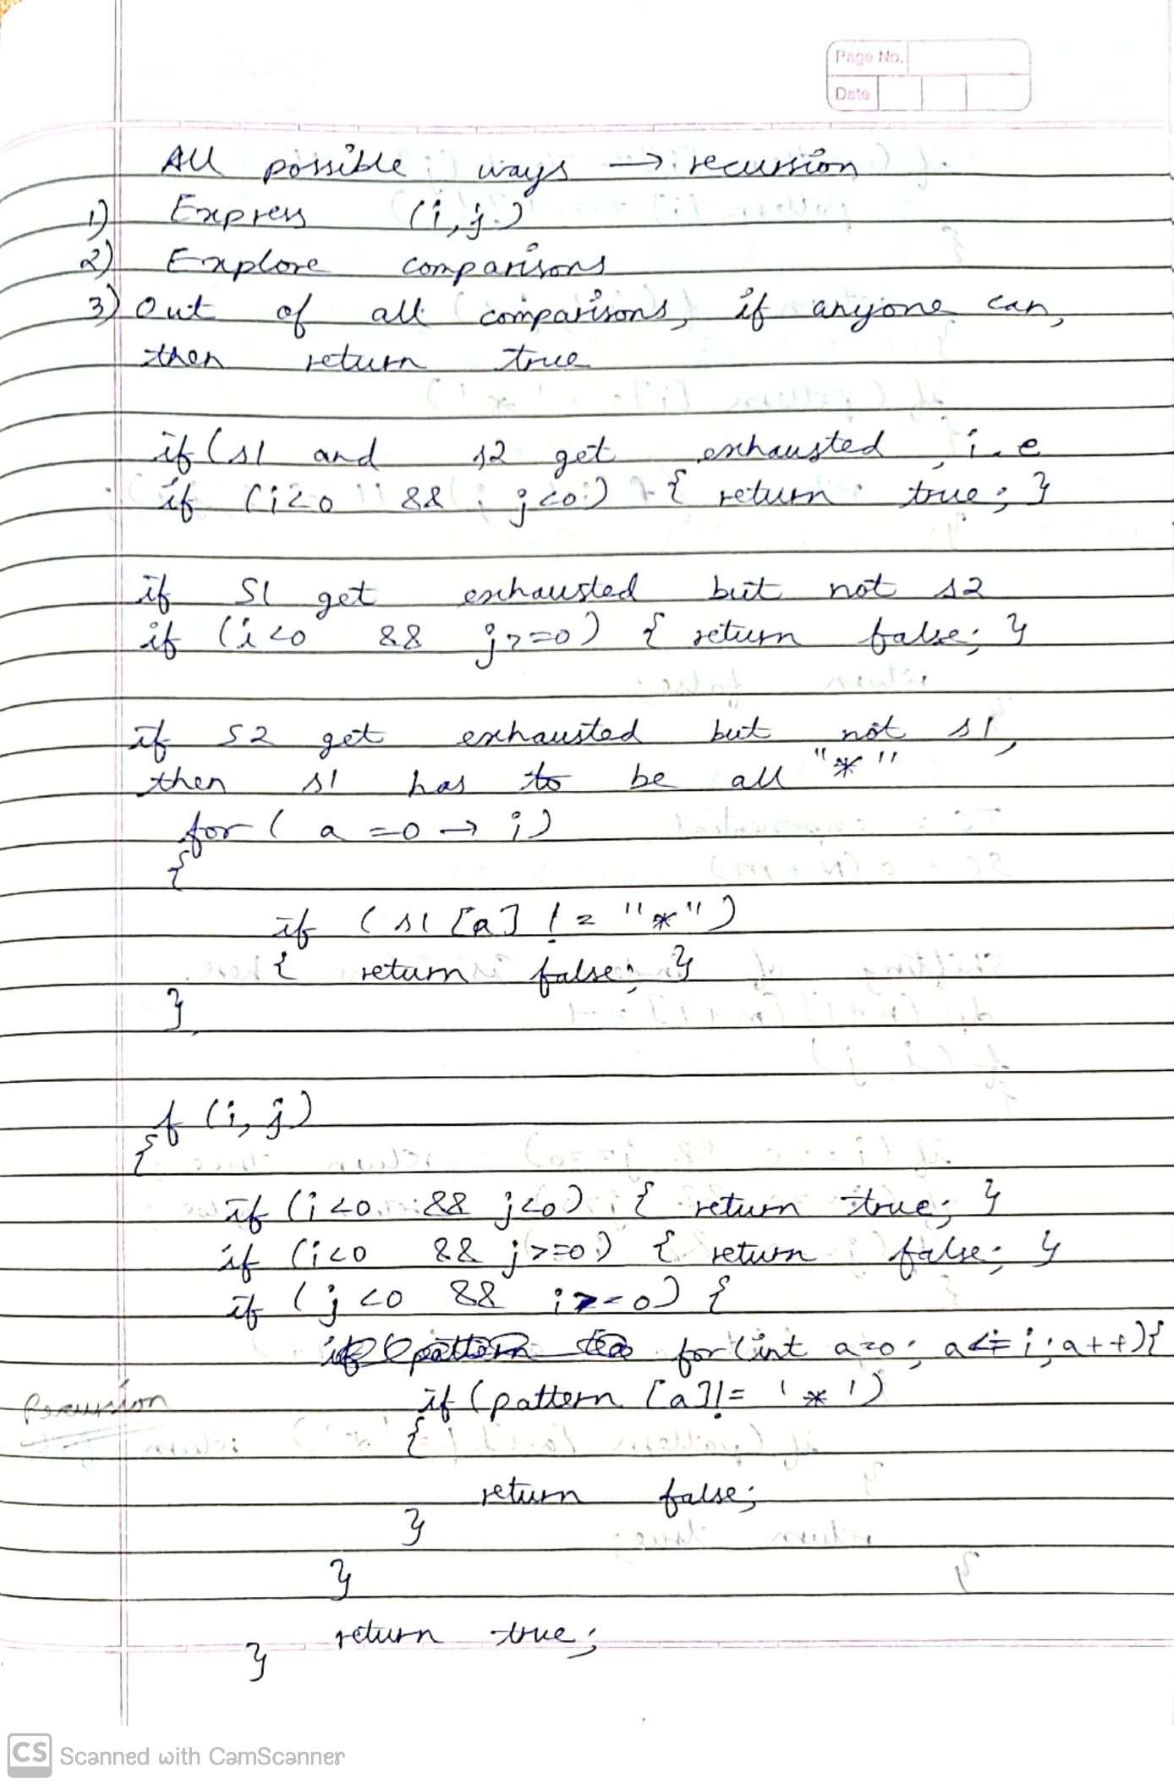 Page No.
Date
All possible ways → recursion
1) Express (i, j)
2) Explore comparisons
3) Out of all comparisons, if anyone can,
then return true
if (s1 and s2 get exhausted, i.e
if (i<0 && j<0) { return true; }
if S1 get exhausted but not s2
if (i<0 && j>=0) { return false; }
if S2 get exhausted but not s1,
then s1 has to be all "*"
for ( a = 0 → i)
{
if ( s1 [a] != "*")
{ return false; }
}
f (i, j)
{
if (i<0 && j<0) { return true; }
if (i<0 && j>=0) { return false; }
if (j<0 && i>=0) {
for (int a=0; a<=i; a++) {
if (pattern [a] != '*')
Recursion
{
return false;
}
}
return true;
}
CS Scanned with CamScanner